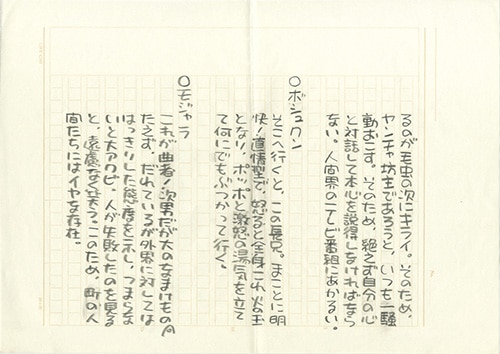 るのが毛虫の次にキライ。そのため、
ヤンチャ坊主であろうと、いつも一騒
動おこす。そのため、絶えず自分の心
と対話して本心を説得しなければなら
ない。人間界のテレビ番組にあかるい。
○ボシュクン
そこへ行くと、この長兄。まことに明
快！直情型で、怒ると全身これ火の玉
となり、ポッポと激怒の湯気を立て
て何にでもぶつかって行く。
○モジャラ
これが曲者！次男だが大のなまけもの
たえず、だれているが外界に対しては
はっきりした態度をとし、つまらな
いと大アクビ、人が失敗したのを見る
と、遠慮なく笑う。このため、町の人
間たちにはイヤな存在。